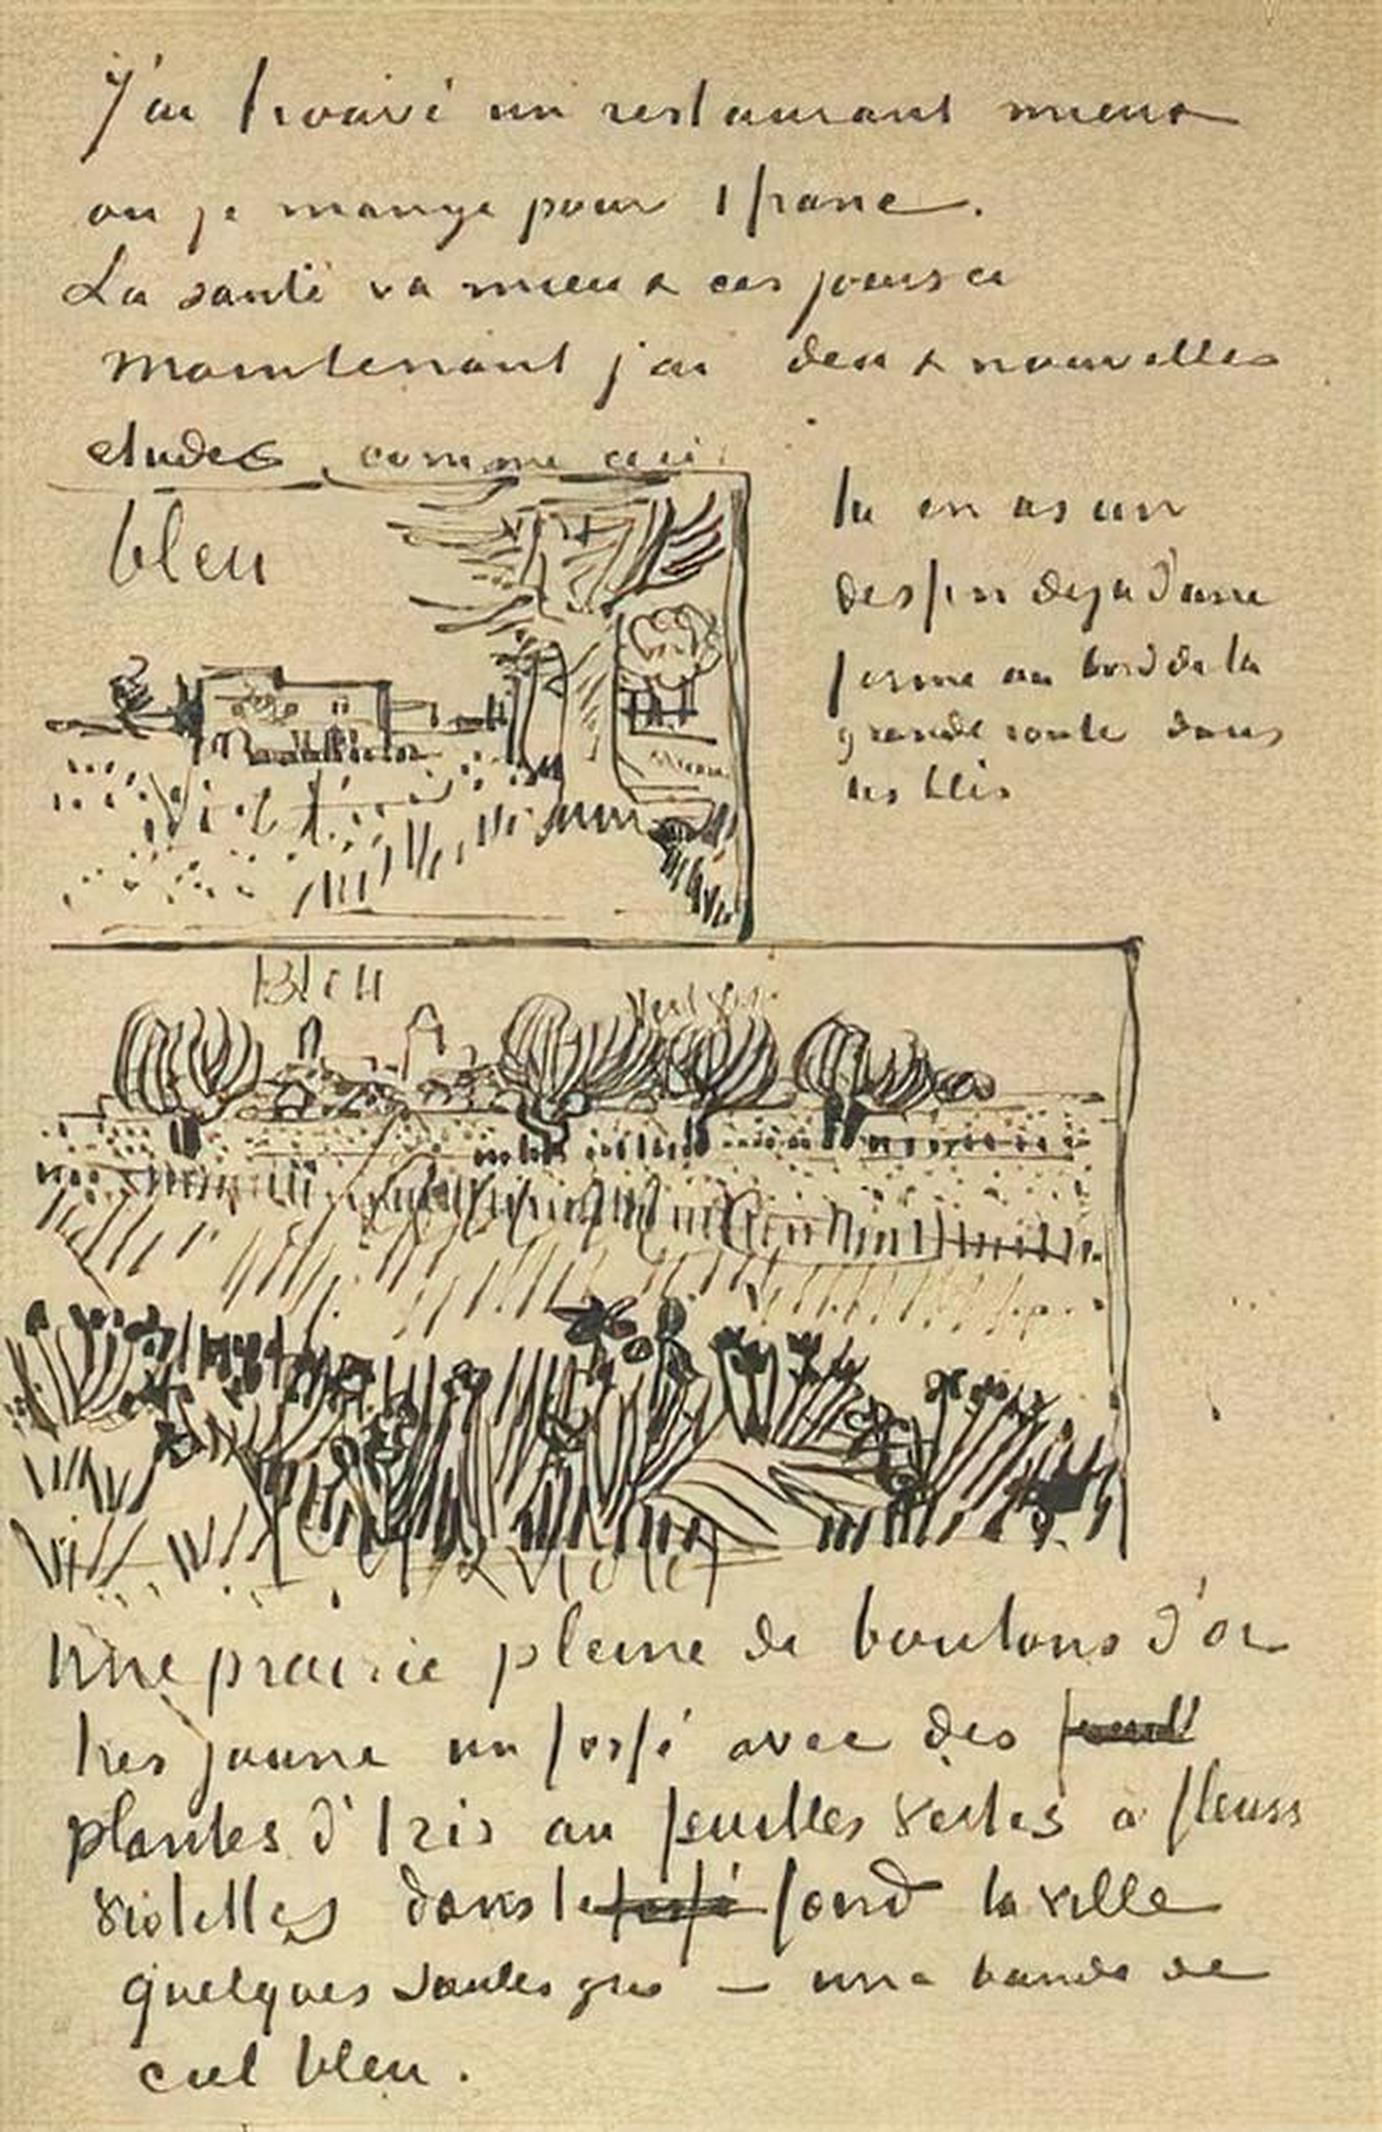 J'ai trouvé un restaurant mieux
ou je mange pour 1 franc.
La santé va mieux ces jours ci
Maintenant j'ai deux nouvelles
etudes comme ceci
bleu
tu en as un
dessin deja d'une
ferme au bord de la
grande route dans
les blés
Bleu
Vert
Violet
Une prairie pleine de boutons d'or
tres jaune un fossé avec des feuill
plantes d'Iris au feuilles vertes à fleurs
violettes dans le fossé fond la ville
quelques saules gris – une bande de
ciel bleu.